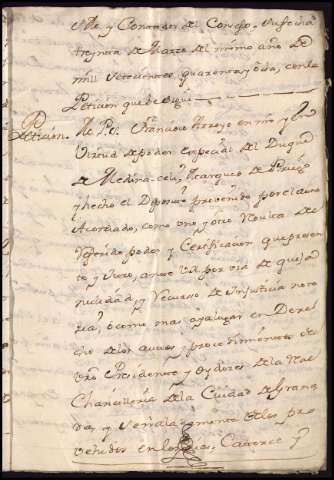 Me y Contador del Consejo, su fecha
treynta de Marzo del mismo año de
mill setecientos quarenta y ocho, con la
Peticion que se sigue
Peticion. M. P. S. Francisco Arroyo en nre y en
Virtud de poder especial del Duque
de Medina-celi, Marques de Priego
y hecho el Deposito prevenido por el auto
Acordado, como uno, y otro consta del
referido poder y Certificacion que presen
to y Juro, ante V.A. por via de queja
nulidad, y recurso de Injusticia noto
ria, o como mas aya lugar en Dere
cho de los autos, y procedimientos de
vro Presidente y Oydores de la Real
Chancilleria de la Ciudad de Grana
da, y señaladamente de los pro
vehidos en los dias, Catorce y